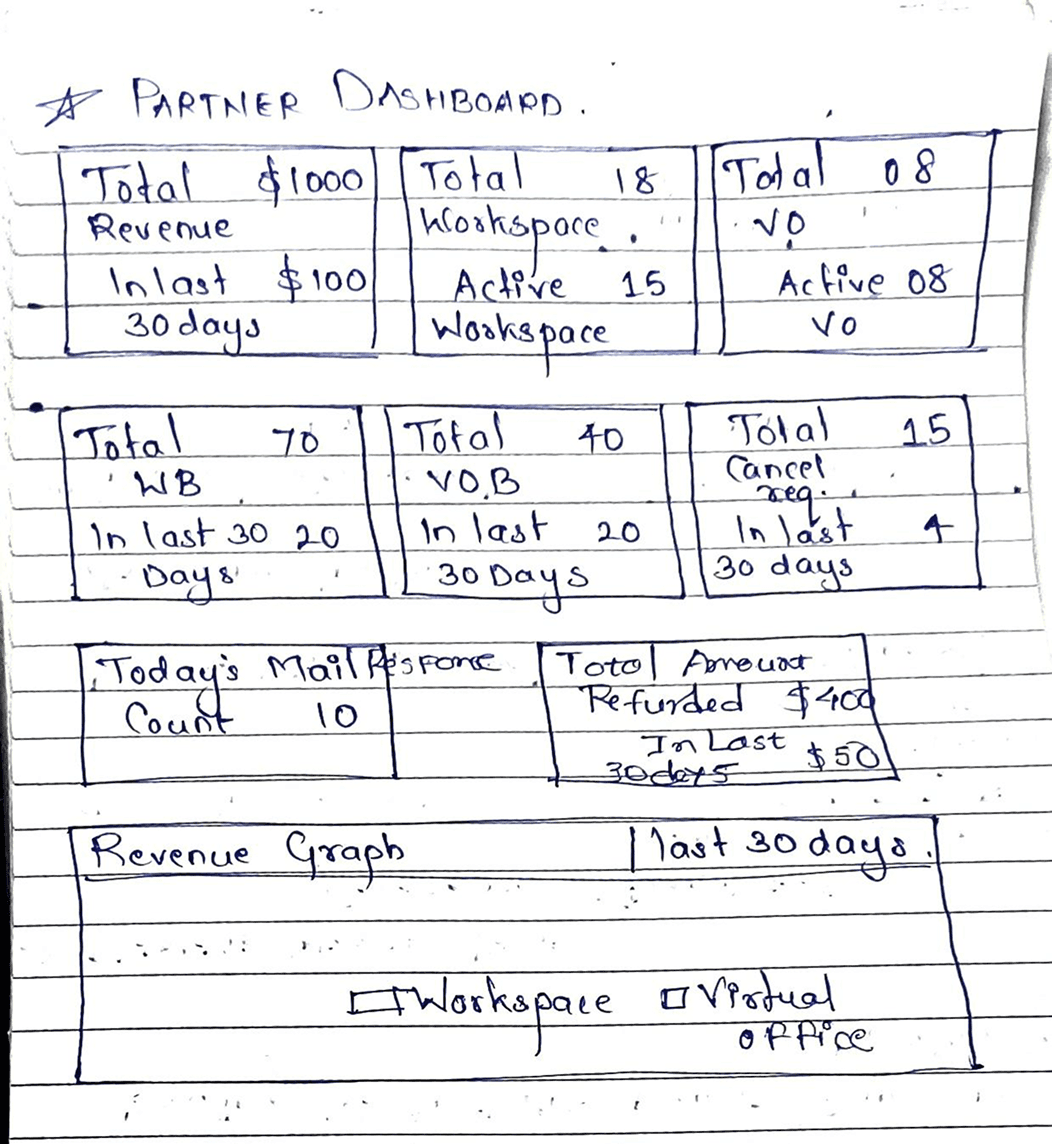 ☆ PARTNER DASHBOARD.
Total $1000
Revenue
In last $100
30 days
Total 18
Workspace.
Active 15
Workspace
Total 08
VO
Active 08
VO
Total 70
WB
In last 30 20
Days
Total 40
VO.B
In last 20
30 Days
Total 15
Cancel
req.
In last 4
30 days
Today's Mail Response
Count 10
Total Amount
Refunded $400
In Last $50
30 days
Revenue Graph last 30 days.
Workspace Virtual
office